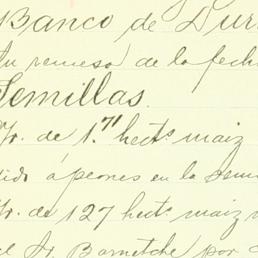 Banco de Dur
Su remesa de la fech
Semillas.
Vr. de 1.71 hects maiz
dido á peones en la sema
Vr. de 127 hects maiz v
el Sr. Barnetche por